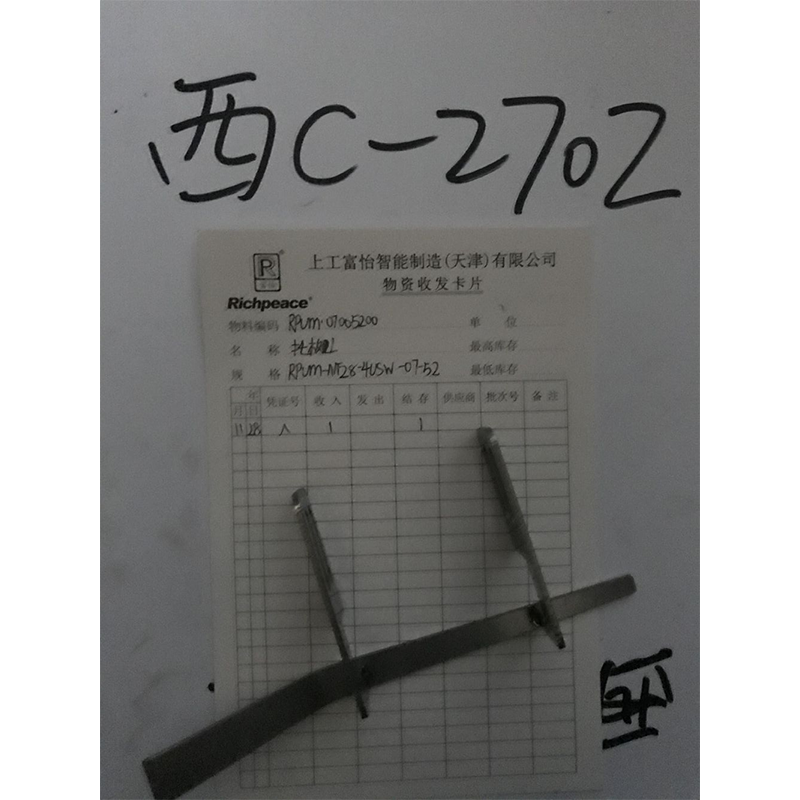 西C-2702
R
上工富怡智能制造(天津)有限公司
物资收发卡片
Richpeace®
物料编码 RPUM-07005200 单 位
名 称 最高库存
规 格 RPUM-NF28-4USW-07-52 最低库存
年 凭证号 收入 发出 结存 供应商 批次号 备注
月 日
11 28 入 1 1